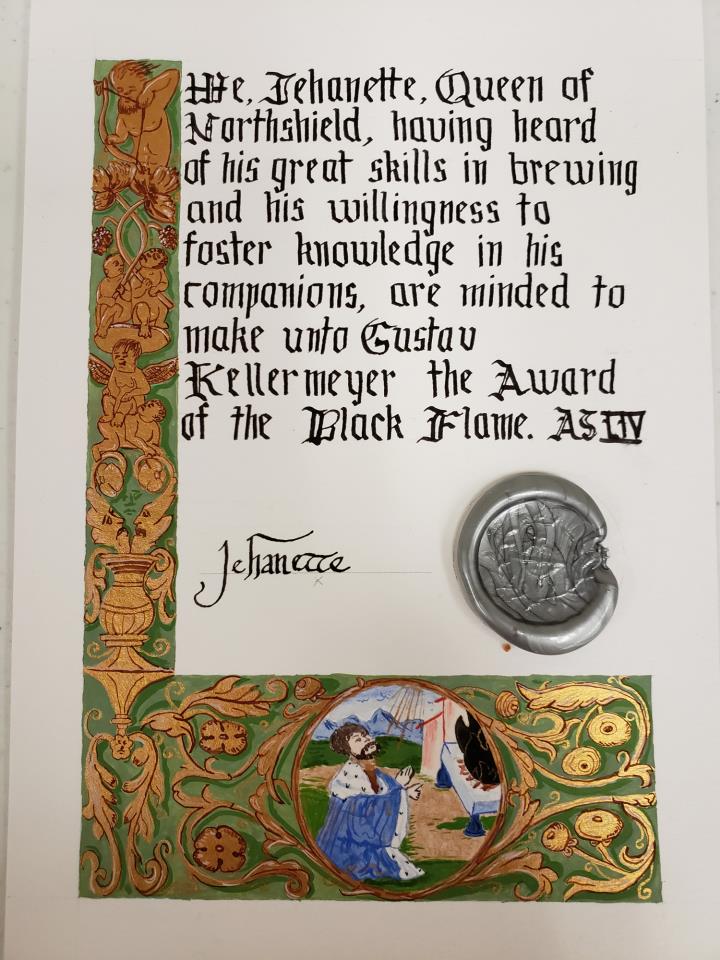 We, Jehanette, Queen of
Northshield, having heard
of his great skills in brewing
and his willingness to
foster knowledge in his
companions, are minded to
make unto Gustav
Kellermeyer the Award
of the Black Flame. AS LIV
Jehanette
x